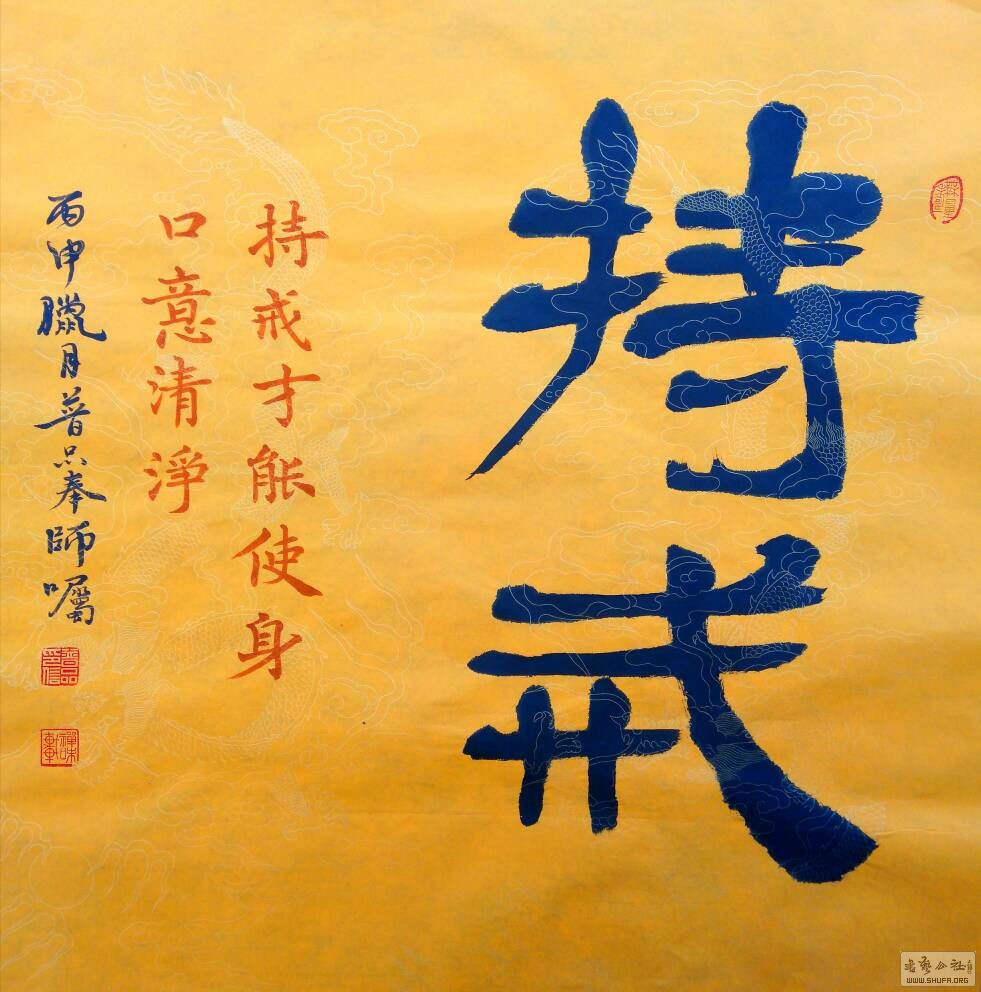 持戒
持戒才能使身
口意清淨
丙申臘月普只奉師囑
WWW.SHUFA.ORG